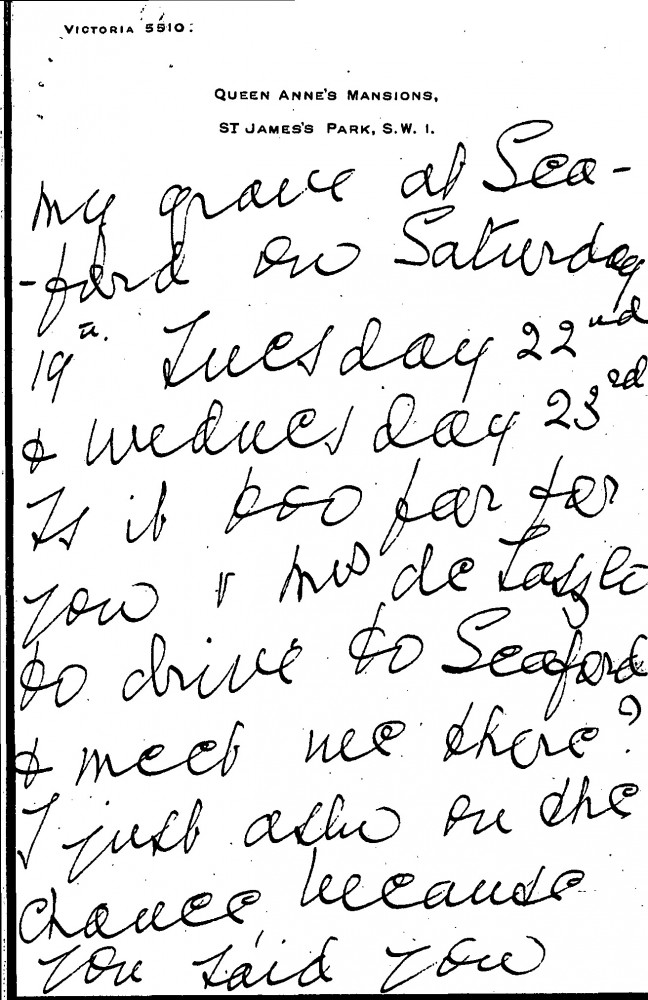 VICTORIA 5510.
QUEEN ANNE'S MANSIONS,
ST JAMES'S PARK, S.W. 1.
my grave at Sea-
-ford on Saturday
19th. Tuesday 22nd
& Wednesday 23rd
Is it too far for
you & Mrs de Laszlo
to drive to Seaford
& meet me there?
I just ask on the
chance because
you said you